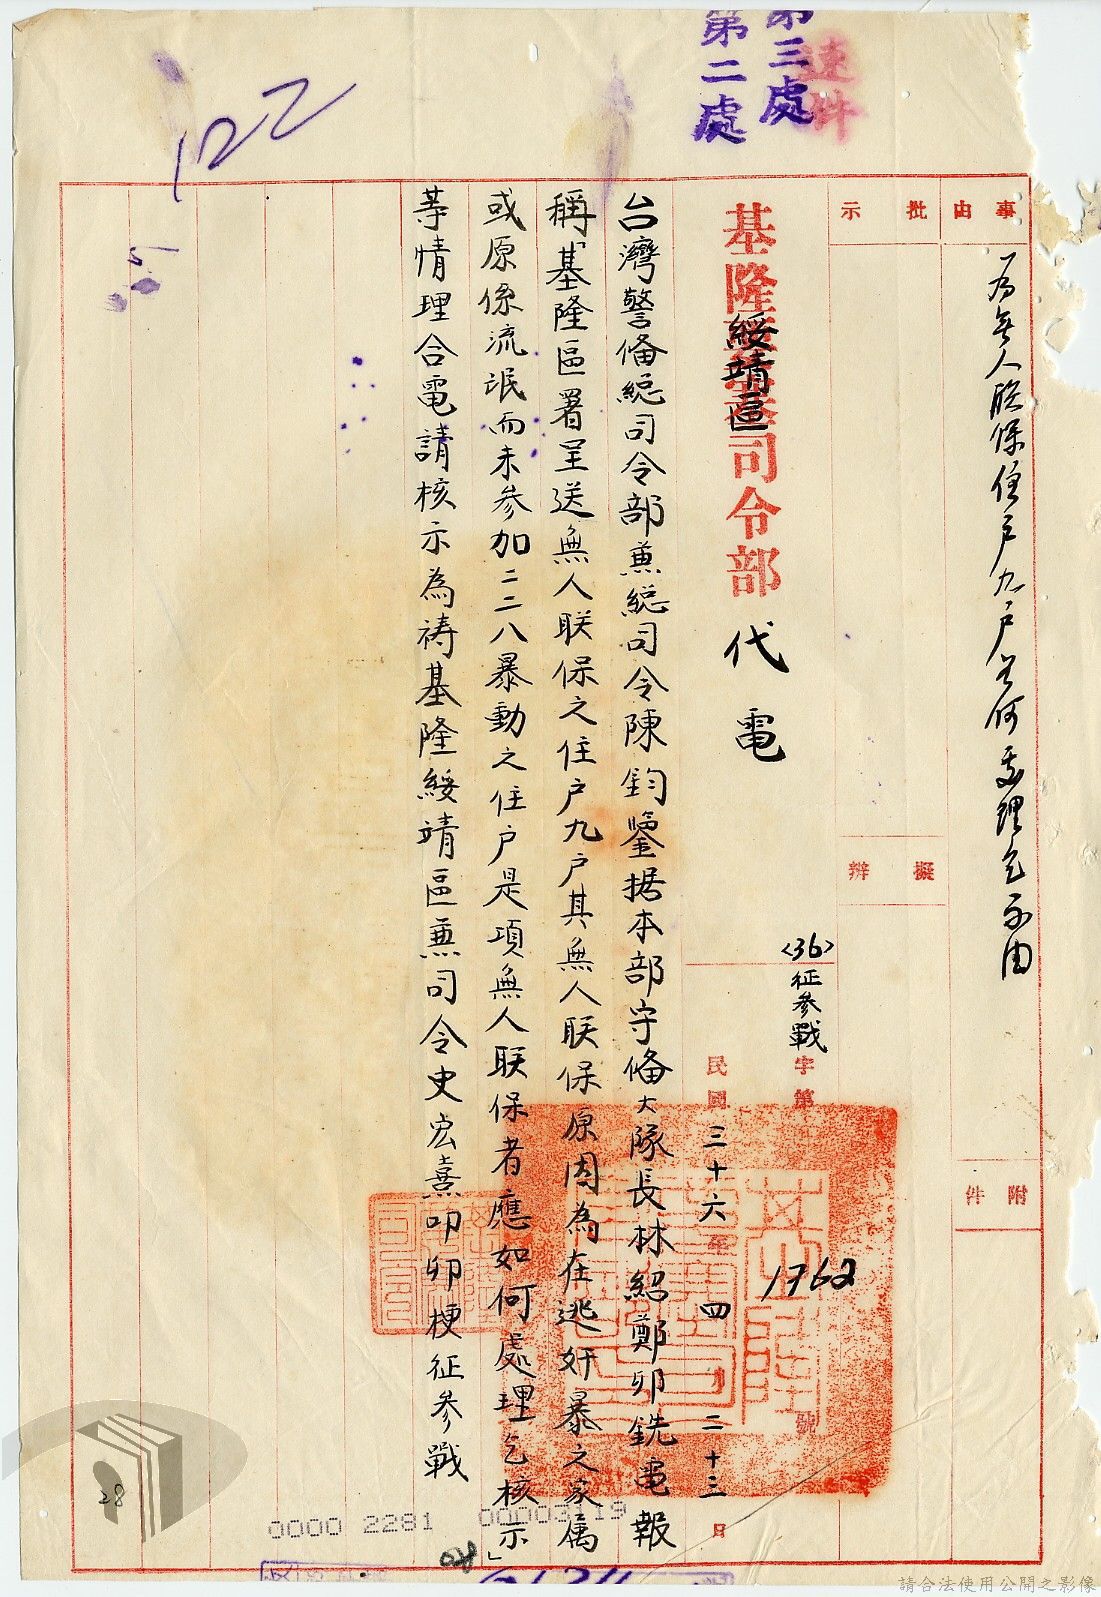 速件
第三處
第二處
122
事由
為無人聯保住戶九戶如何處理乞示由
附件
批示
擬辦
<36>征參戰字第1762號
民國三十六年四月二十三日
基隆綏靖區司令部代電
台灣警備總司令部兼總司令陳鈞鑒据本部守备大隊長林紹鄭卯銑電報
稱「基隆區署呈送無人联保之住户九户其無人联保原因為在逃奸暴之家属
或原係流氓而未参加二二八暴動之住户是項無人联保者應如何處理乞核示」
等情理合電請核示為禱基隆綏靖區兼司令史宏熹叩卯梗征参戰
28
0000 2281 00003119
請合法使用公開之影像